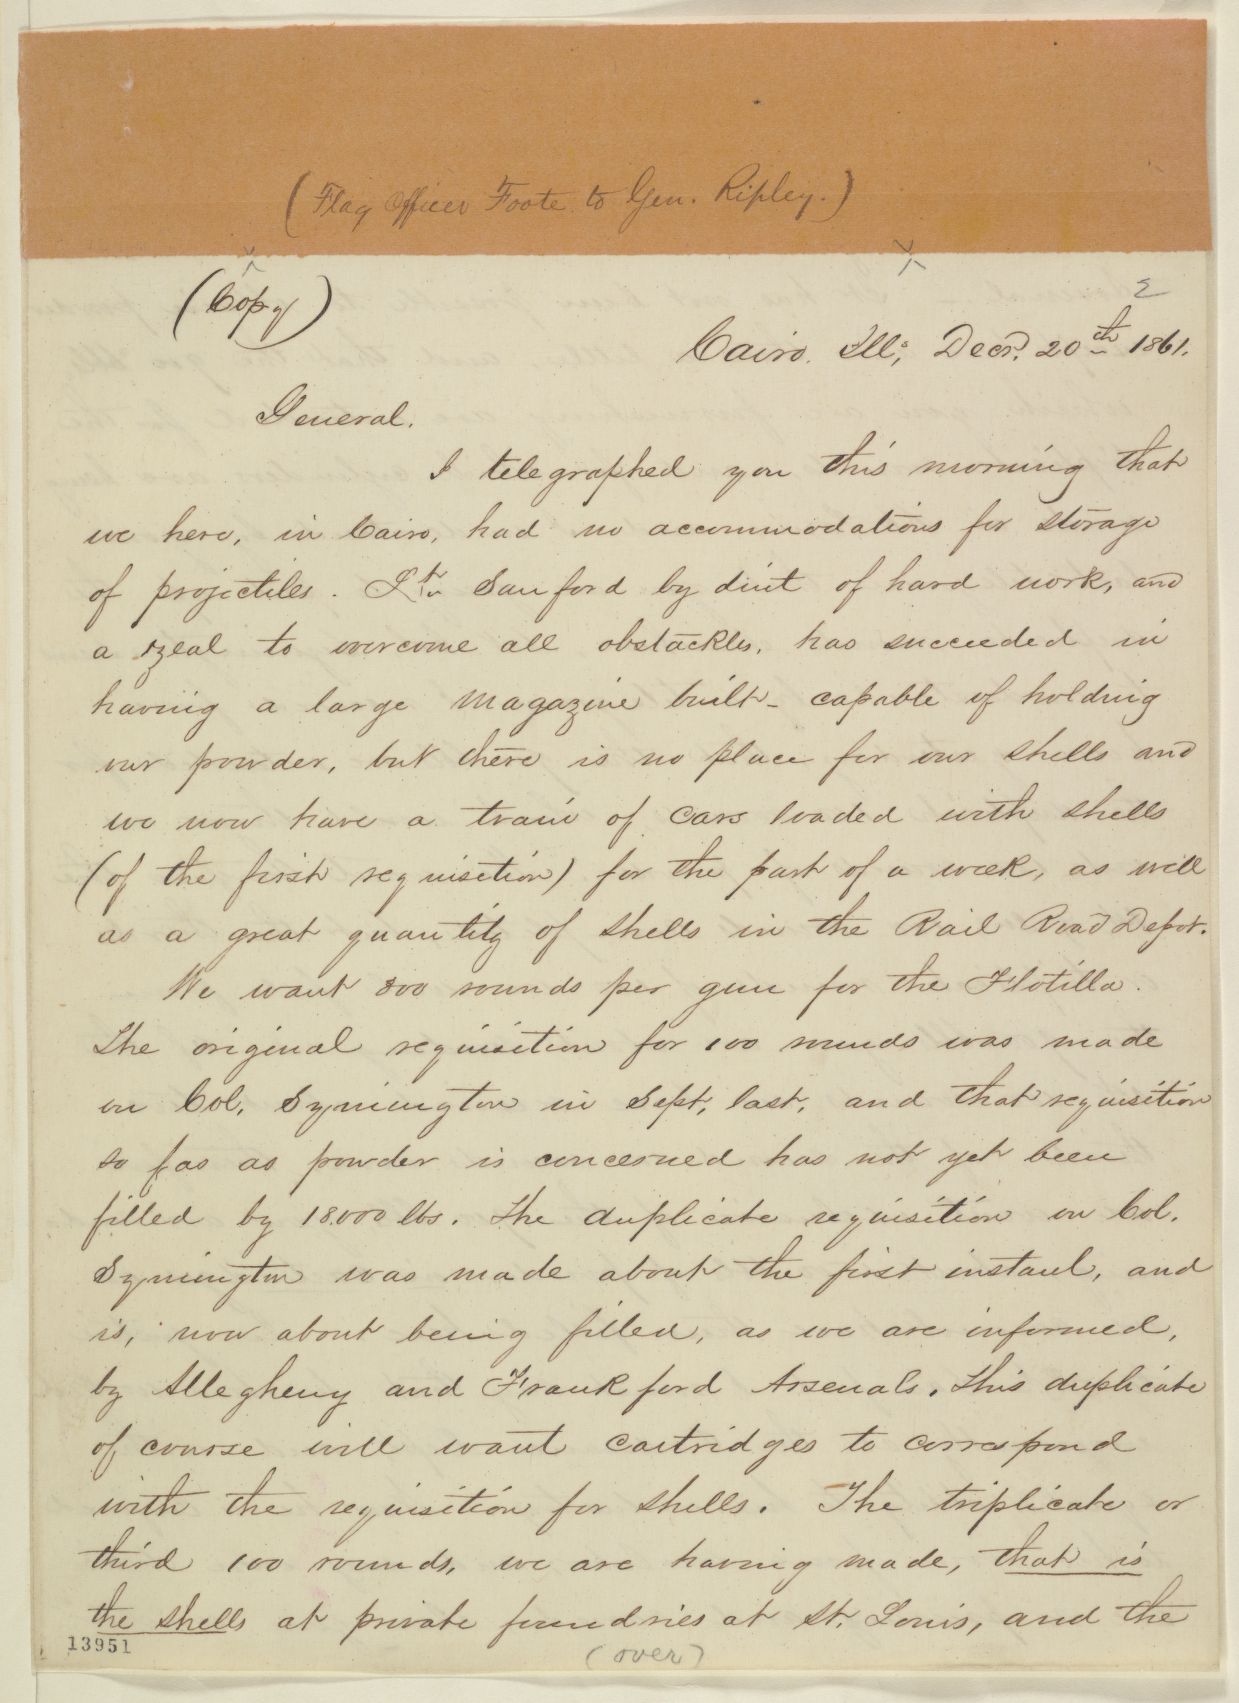 (Flag Officer Foote to Gen. Ripley.)
(Copy)
2
Cairo. Ills, Decr. 20th 1861.
General.
I telegraphed you this morning that
we here, in Cairo, had no accommodations for storage
of projectiles. Lt. Sanford by dint of hard work, and
a zeal to overcome all obstackles, has succeeded in
having a large magazine built - capable of holding
our powder, but there is no place for our shells and
we now have a train of cars loaded with shells
(of the first requisition) for the part of a week, as well
as a great quantity of shells in the Rail Road Depot.
We want 300 rounds per gun for the Flotilla.
The original requisition for 100 rounds was made
on Col. Symington in Sept, last, and that requisition
so far as powder is concerned has not yet been
filled by 18.000 lbs. The duplicate requisition on Col.
Symington was made about the first instant, and
is, now about being filled, as we are informed,
by Allegheny and Frankford Arsenals. This duplicate
of course will want cartridges to correspond
with the requisition for shells. The triplicate or
third 100 rounds, we are having made, that is
the shells at private foundries at St. Louis, and the
(over)
13951